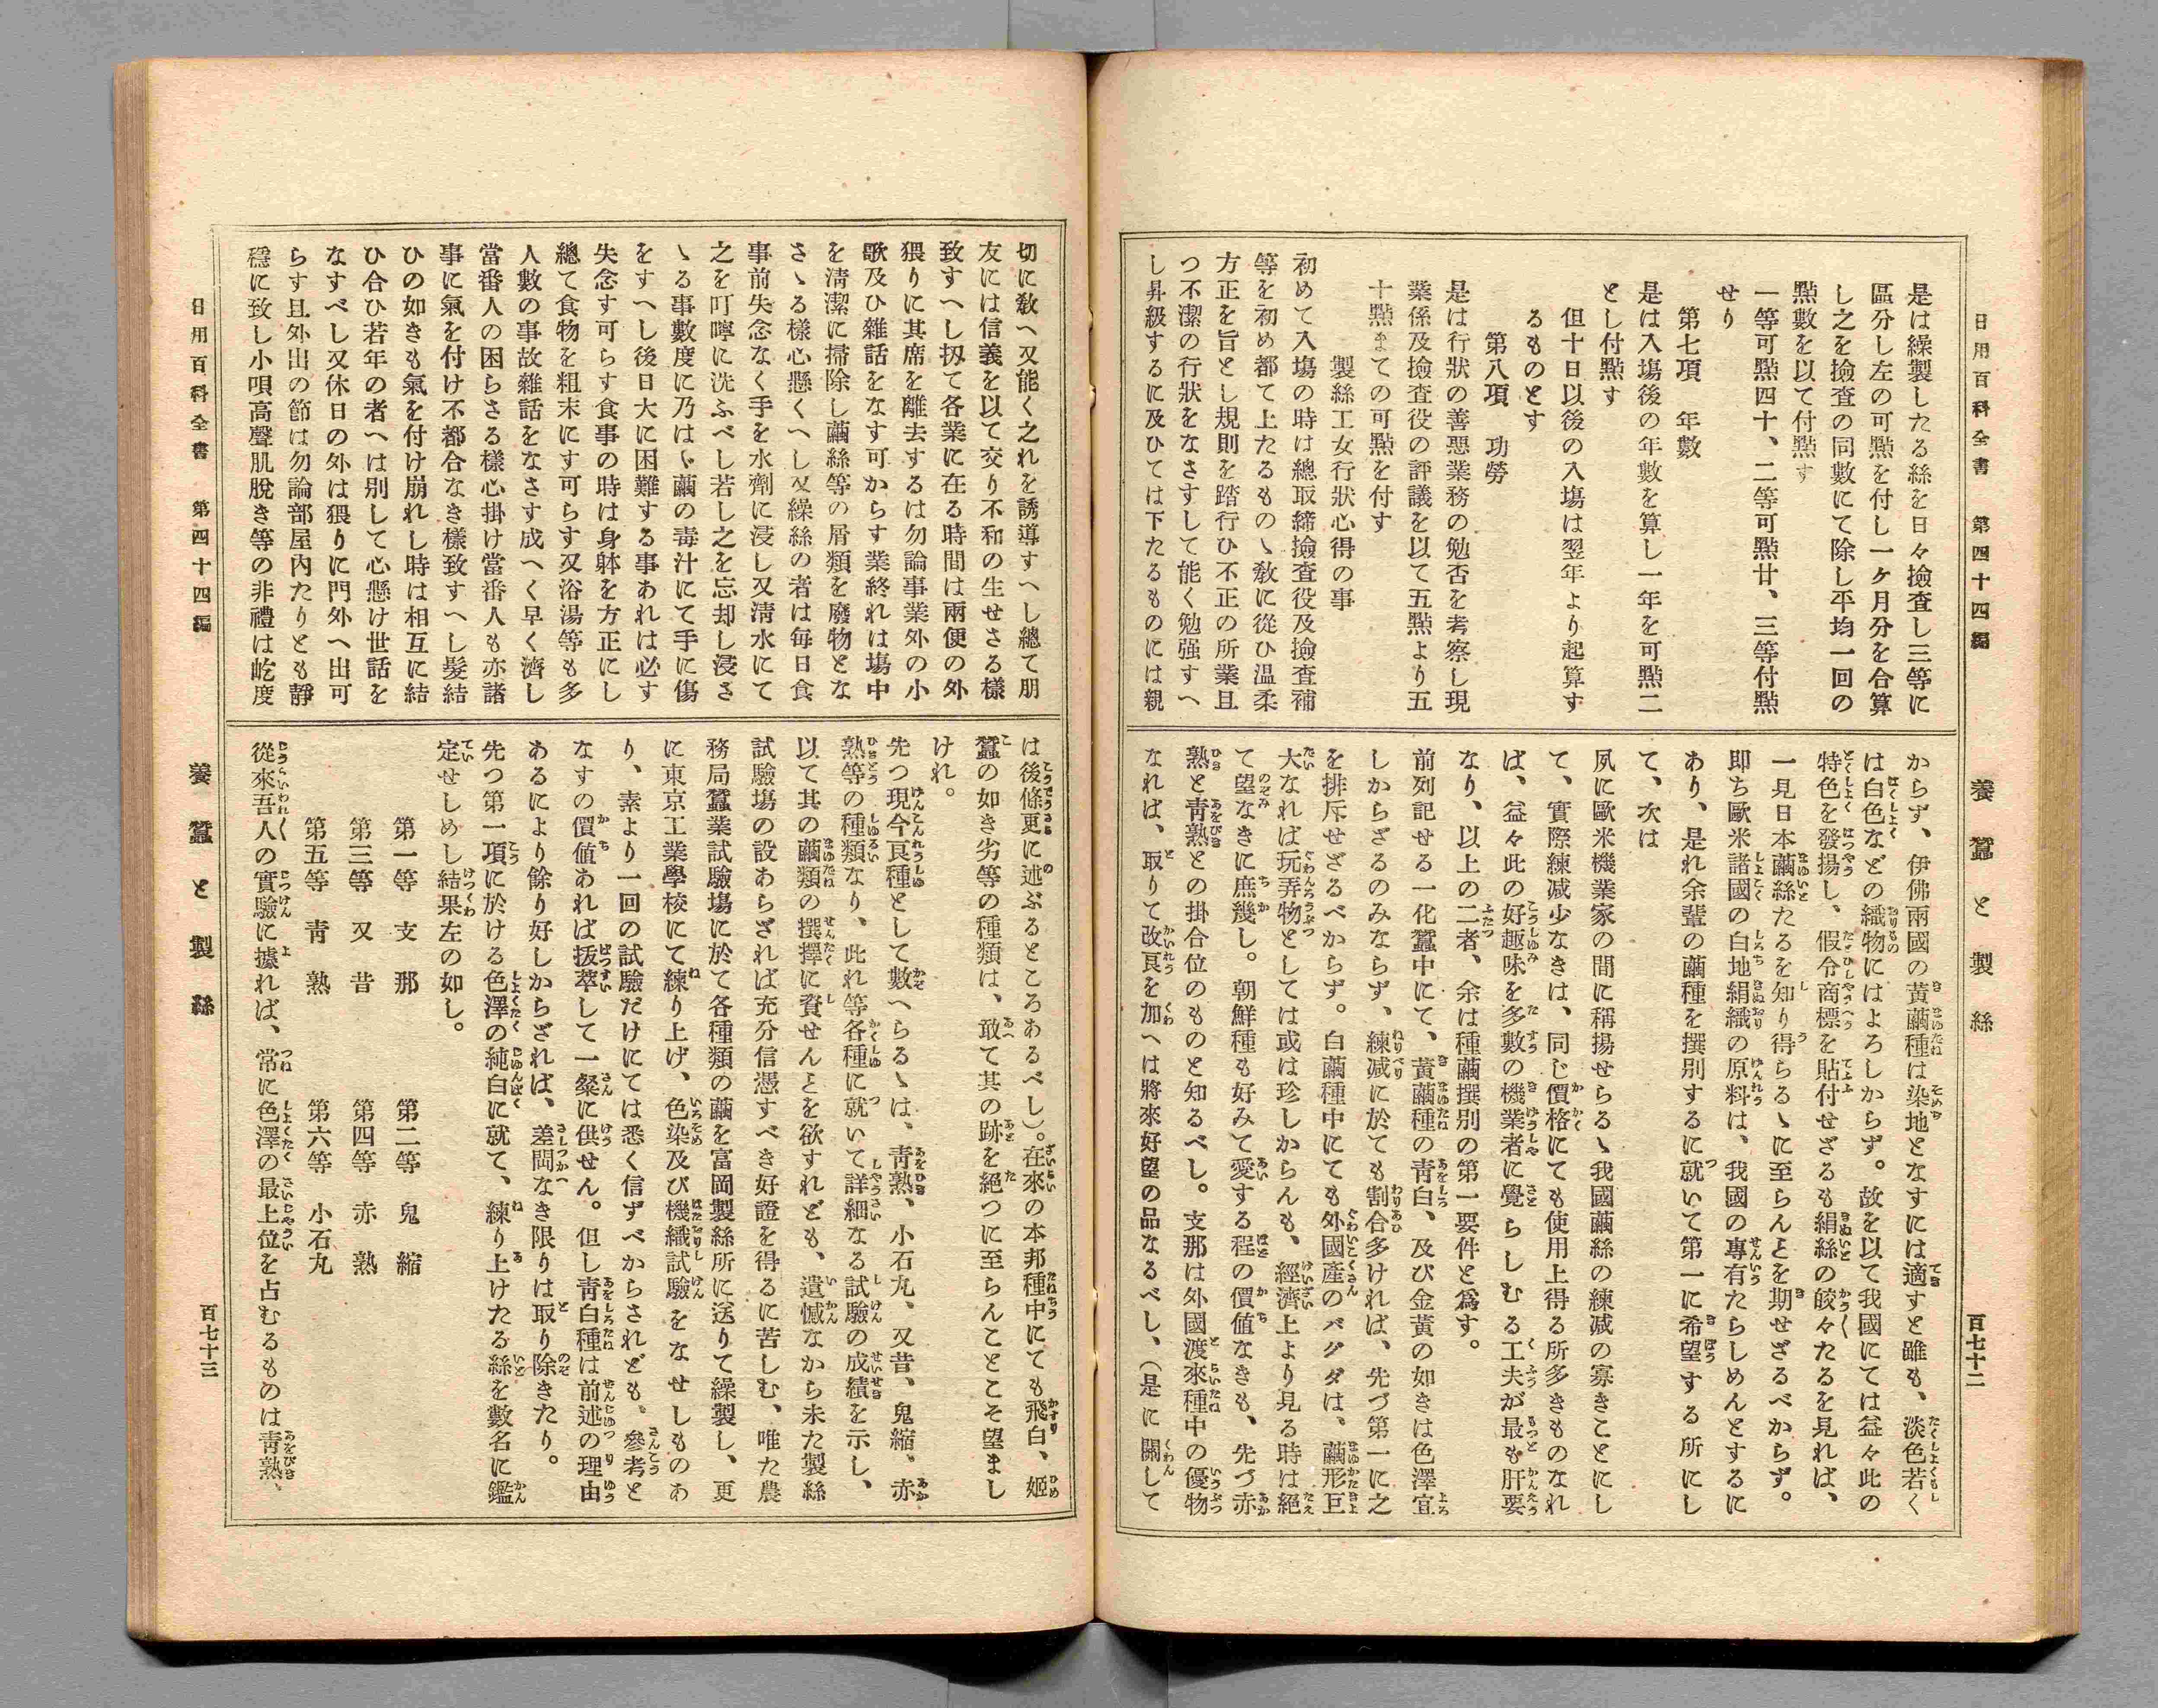 日用百科全書 第四十四編 養蠶と製絲 百七十二
是は繰製したる絲を日々撿査し三等に
區分し左の可點を付し一ヶ月分を合算
し之を撿査の同數にて除し平均一回の
點數を以て付點す
一等可點四十、二等可點廿、三等付點
せり
第七項 年數
是は入塲後の年數を算し一年を可點二
とし付點す
但十日以後の入塲は翌年より起算す
るものとす
第八項 功勞
是は行狀の善惡業務の勉否を考察し現
業係及撿査役の評議を以て五點より五
十點までの可點を付す
製絲工女行狀心得の事
初めて入塲の時は總取締撿査役及撿査補
等を初め都て上たるものゝ敎に從ひ溫柔
方正を旨とし規則を踏行ひ不正の所業且
つ不潔の行狀をなさすして能く勉强すへ
し昇級するに及ひては下たるものには親
からず、伊佛兩國の黃繭種は染地となすには適すと雖も、淡色若く
は白色などの織物にはよろしからず。故を以て我國にては益々此の
特色を發揚し、假令商標を貼付せざるも絹絲の皎々たるを見れば、
一見日本繭絲たるを知り得らるゝに至らんとを期せざるべからず。
即ち歐米諸國の白地絹織の原料は、我國の專有たらしめんとするに
あり、是れ余輩の繭種を撰別するに就いて第一に希望する所にし
て、次は
夙に歐米機業家の間に稱揚せらるゝ我國繭絲の練減の寡きことにし
て、實際練减少なきは、同じ價格にても使用上得る所多きものなれ
ば、益々此の好趣味を多數の機業者に覺らしむる工夫が最も肝要
なり、以上の二者、余は種繭撰別の第一要件と爲す。
前列記せる一化蠶中にて、黃繭種の靑白、及び金黃の如きは色澤宜
しからざるのみならず、練减に於ても割合多ければ、先づ第一に之
を排斥せざるべからず。白繭種中にても外國產のバグダは、繭形巨
大なれば玩弄物としては或は珍しからんも、經濟上より見る時は絕
て望なきに庶幾し。朝鮮種も好みて愛する程の價値なきも、先づ赤
熟と靑熟との掛合位のものと知るべし。支那は外國渡來種中の優物
なれば、取りて改良を加へは將來好望の品なるべし、（是に關して
切に敎へ又能く之れを誘導すへし總て朋
友には信義を以て交り不和の生せさる樣
致すへし扨て各業に在る時間は兩便の外
猥りに其席を離去するは勿論事業外の小
歌及ひ雜話をなす可からす業終れは塲中
を淸潔に掃除し繭絲等の屑類を廢物とな
さゝる樣心懸くへし又繰絲の者は每日食
事前失念なく手を水劑に浸し又淸水にて
之を叮嚀に洗ふべし若し之を忘却し浸さ
ゝる事數度に乃はゝ繭の毒汁にて手に傷
をすへし後日大に困難する事あれは必す
失念す可らす食事の時は身躰を方正にし
總て食物を粗末にす可らす又浴湯等も多
人數の事故雜話をなさす成へく早く濟し
當番人の困らさる樣心掛け當番人も亦諸
事に氣を付け不都合なき樣致すへし髮結
ひの如きも氣を付け崩れし時は相互に結
ひ合ひ若年の者へは別して心懸け世話を
なすべし又休日の外は猥りに門外へ出可
らす且外出の節は勿論部屋內たりとも靜
穩に致し小唄高聲肌脫き等の非禮は屹度
は後條更に述ぶるところあるべし）。在來の本邦種中にても飛白、姬
蠶の如き劣等の種類は、敢て其の跡を絕つに至らんことこそ望まし
けれ。
先つ現今良種として數へらるゝは、靑熟、小石丸、又昔、鬼縮、赤
熟等の種類なり、此れ等各種に就いて詳細なる試驗の成績を示し、
以て其の繭類の撰擇に資せんとを欲すれども、遺憾なから未た製絲
試驗塲の設あらざれば充分信憑すべき好證を得るに苦しむ、唯た農
務局蠶業試驗塲に於て各種類の繭を富岡製絲所に送りて繰製し、更
に東京工業學校にて練り上げ、色染及び機織試驗をなせしものあ
り、素より一回の試驗だけにては悉く信ずべからされども。參考と
なすの價値あれば拔萃して一粲に供せん。但し靑白種は前述の理由
あるにより餘り好しからざれば、差閊なき限りは取り除きたり。
先つ第一項に於ける色澤の純白に就て、練り上けたる絲を數名に鑑
定せしめし結果左の如し。
第一等 支那 第二等 鬼縮
第三等 又昔 第四等 赤熟
第五等 靑熟 第六等 小石丸
從來吾人の實驗に據れば、常に色澤の最上位を占むるものは靑熟、
日用百科全書 第四十四編 養蠶と製絲 百七十三